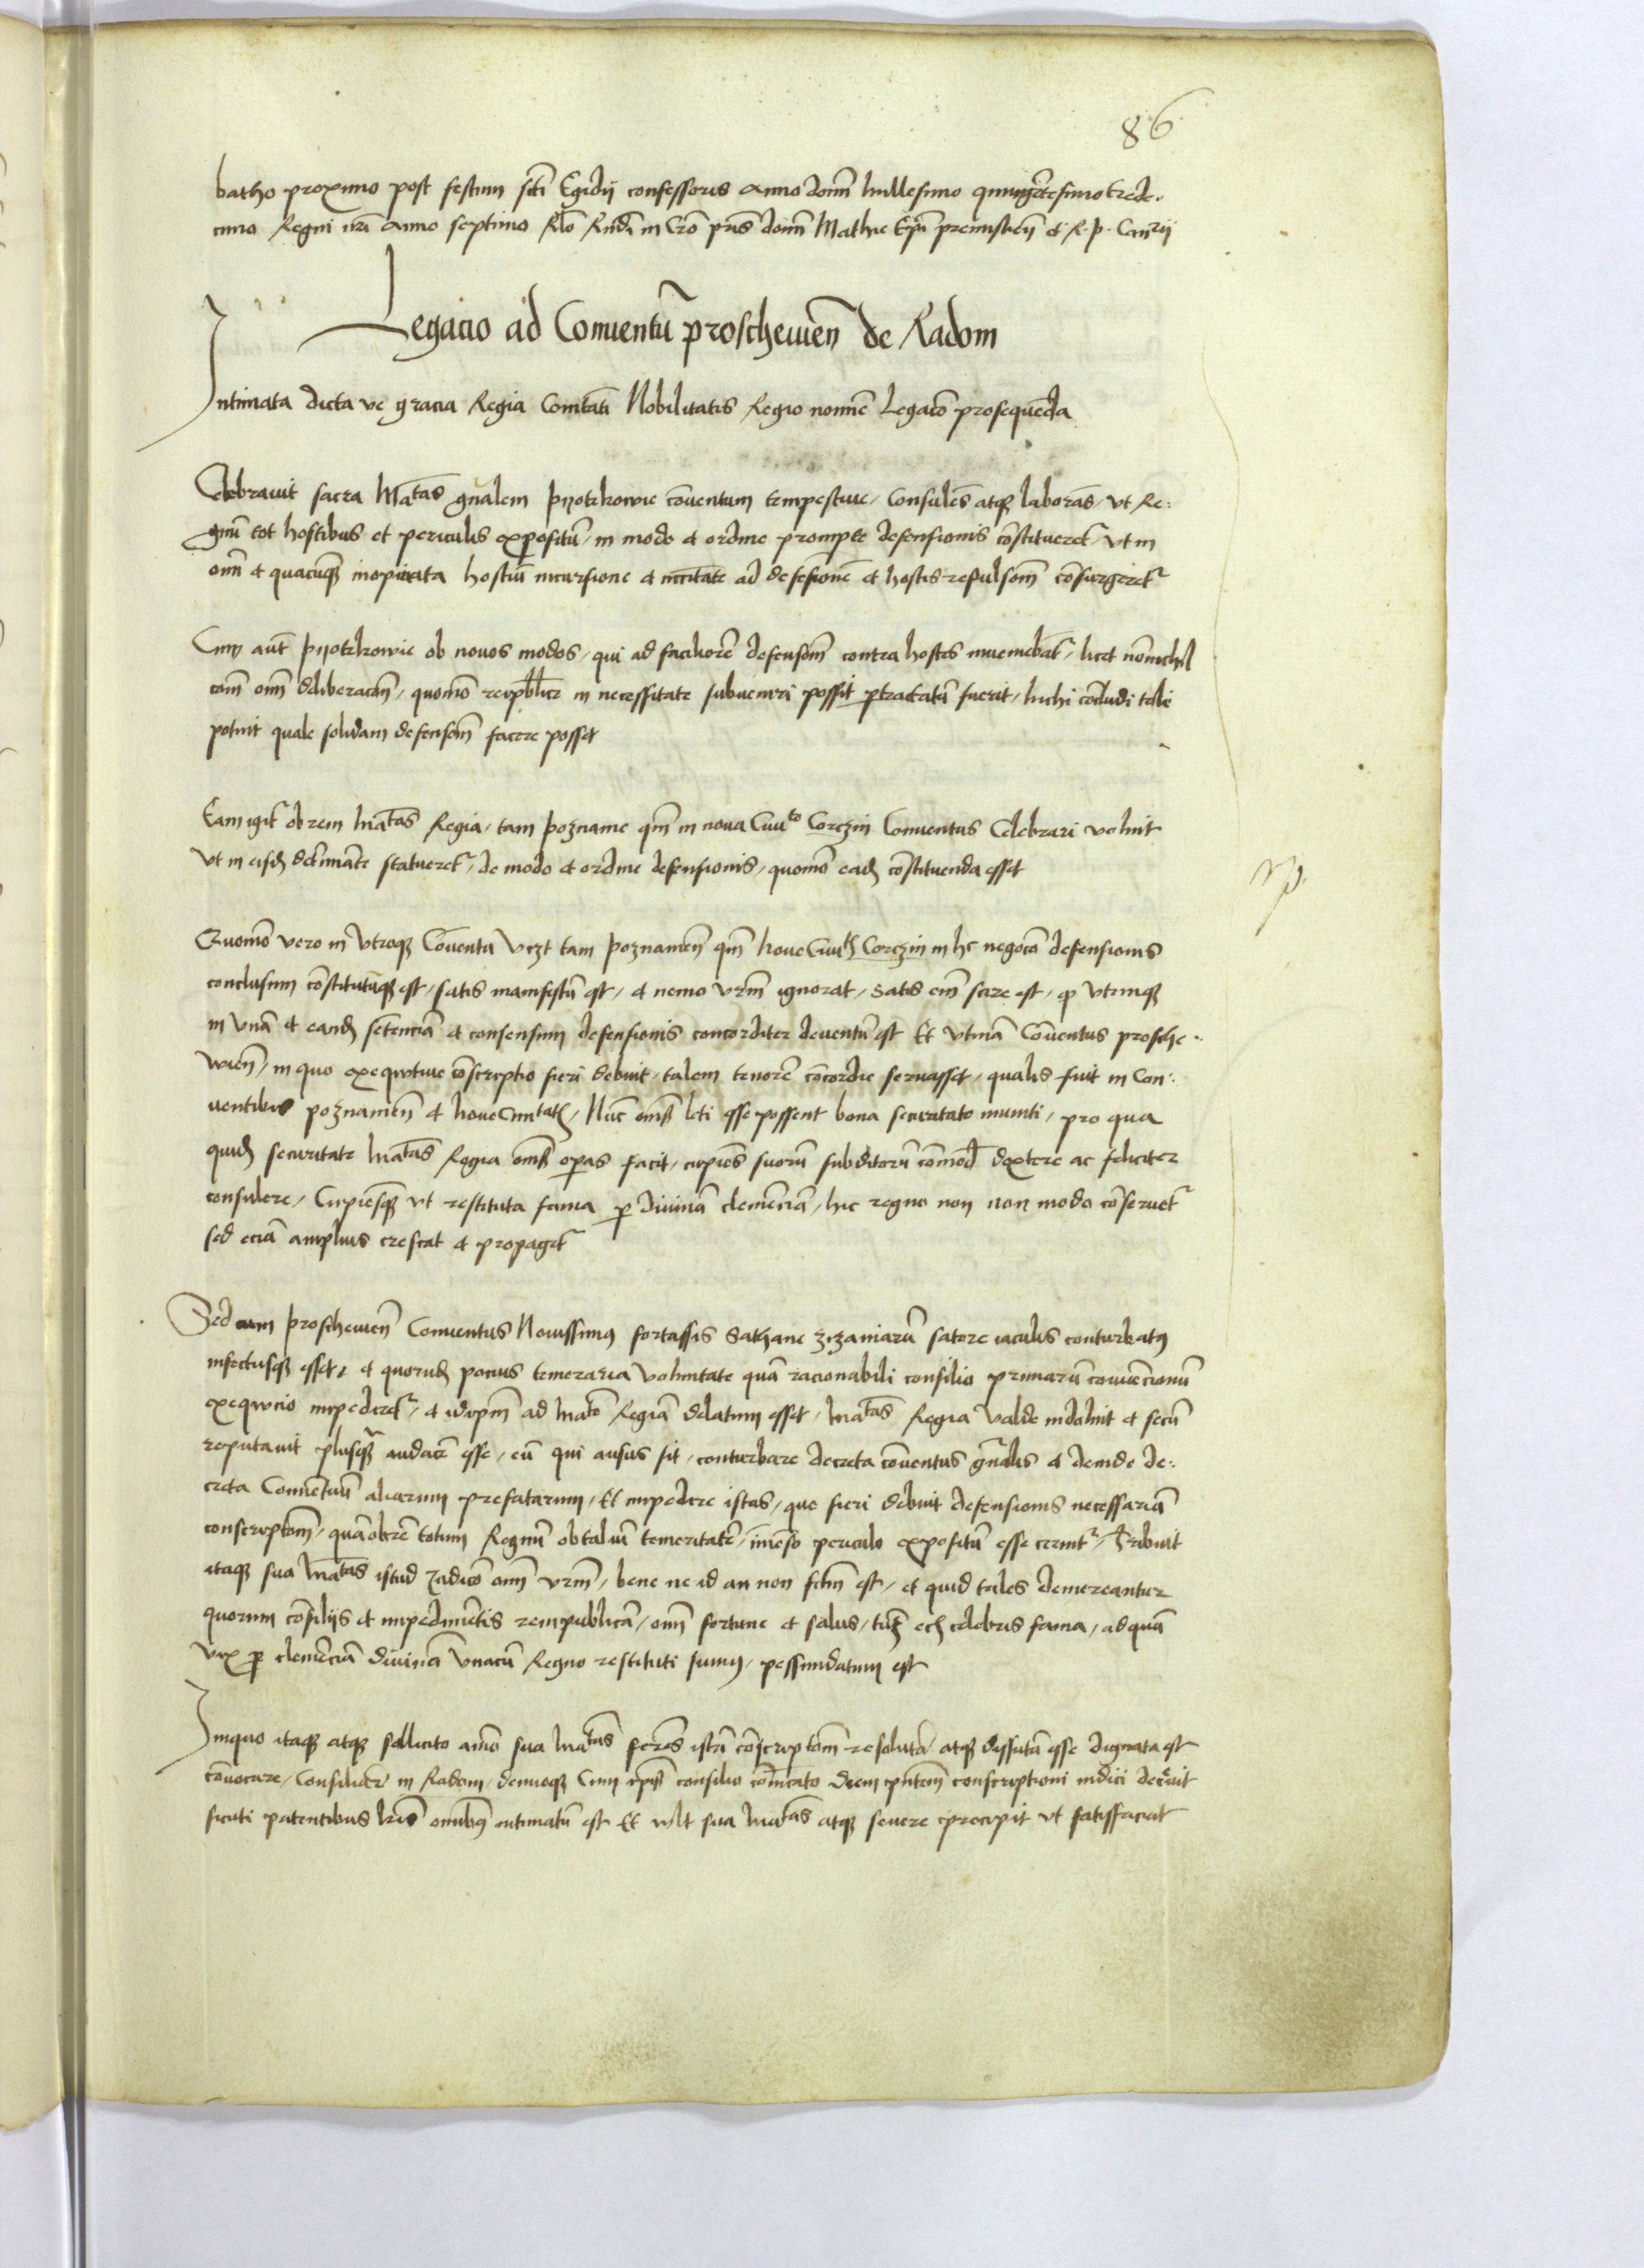 86
batho proximo post festum sti Egidij confessoris Anno domi Millesimo quingentesimo trede-
cimo Regni nri Anno septimo Rlo Rndi in Cro pris domi Mathie Epi premislien et R. p. Canrij
Legacio ad Conuentu proscheuien de Radom
Intimata dicta ve gracia Regia Comitati Nobilitatis Regio nomie Legaco prosequeda
Celebrauit sacra Mtas gnalem pyotrkowie couentum tempestiue, Consules atq laboras, vt Re-
gnu tot hostibus et periculis expositu, in modo et ordine prompte defensionis costitueret, vt in
omi et quacuq inopinata hostiu incursione et nccitate ad defesione et hostis repulsom cosurgeret
Cum aut pyotrkowie ob nouos modos, qui ad faciliore defensom contra hostes inueniebat, licet nonichil
com omi deliberacoe, quomo reipublice in necessitate subueniri possit ptractatu fuerit, Nichi cocludi tale
potuit quale solidam defensom facere posset
Eam igit ob rem Matas Regia, tam poznanie qm in noua Ciuito Corczin Conuentus Celebrari voluit
vt in eisd determiate statueret, de modo et ordine defensionis, quomo ead costituenda esset
Quomo vero in vtroq Couentu vczt tam poznanien qm Noue Ciuit Corczin in hc negoco defensionis
conclusum costitutuq est, satis manifestu est, et nemo vrm ignorat, Satis em scire est, q vtrinq
in vna et eand sentencia et consensum defensionis concorditer deuentu est Et vtina Couentus prosche-
wien, in quo exeqwtiue coscriptio fieri debuit, talem tenore cocordie seruasset, qualis fuit in Con-
uentibus poznanien et Noue Ciuitatis, Nuc omes leti esse possent bona securitate muniti, pro qua
quid securitate Matas Regia omes opas facit, cupies suoru subditoru comod dextere ac feliciter
consulere, Cupiesq vt restituta fama p diuina clemecia, huic regno non non modo coseruet
sed ecia amplius crescat et propaget
Sed cum proscheuien Conuentus Nouissimus fortassis Sathane zizaniaru satore iaculis conturbatus
infectusq esset, et quorud pocius temeraria voluntate qua racionabili consilio primaru conuencionu
exeqwcio impediret, et id ipm ad Mate Regia delatum esset, Matas Regia valde indoluit et secu
reputauit plusq audace esse, eu qui ausus sit, conturbare decreta couentus gnalis et deinde de-
creta Conuetuu aliarum prefatarum, Et impedire istas, que fieri debuit defensionis necessaria
conscriptom, qua obre totum Regnu ob taliu temeritate, imeso periculo expositu esse cernit, Tribuit
itaq sua Matas istud iudico omi vrm, bene ne id an non fctm est, et quid tales demereantur
quorum cosiliis et impedimetis rempublica, omi fortune et salus, tum eci celebris fama, ad qua
vix p clemecia diuina vnacu Regno restituti sumus, pessundatum est
Iniquo itaq atq sollicito aio sua Matas feres ista coscriptom resoluta atq dissuta esse dignata est
couocare, Consiliar in Radom, denuoq Cum ipis consilio comicato diem pntem conscriptioni indici decreuit
sicuti patentibus lris omibus intimatu est Et vlt sua Matas atq seuere precipit vt satisfaciat